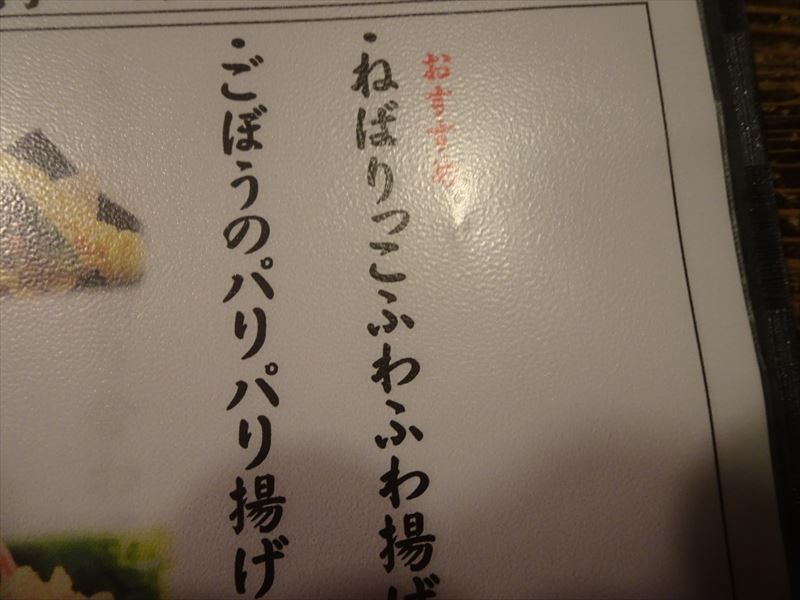 おすすめ
・ねばりっこふわふわ揚げ
・ごぼうのパリパリ揚げ